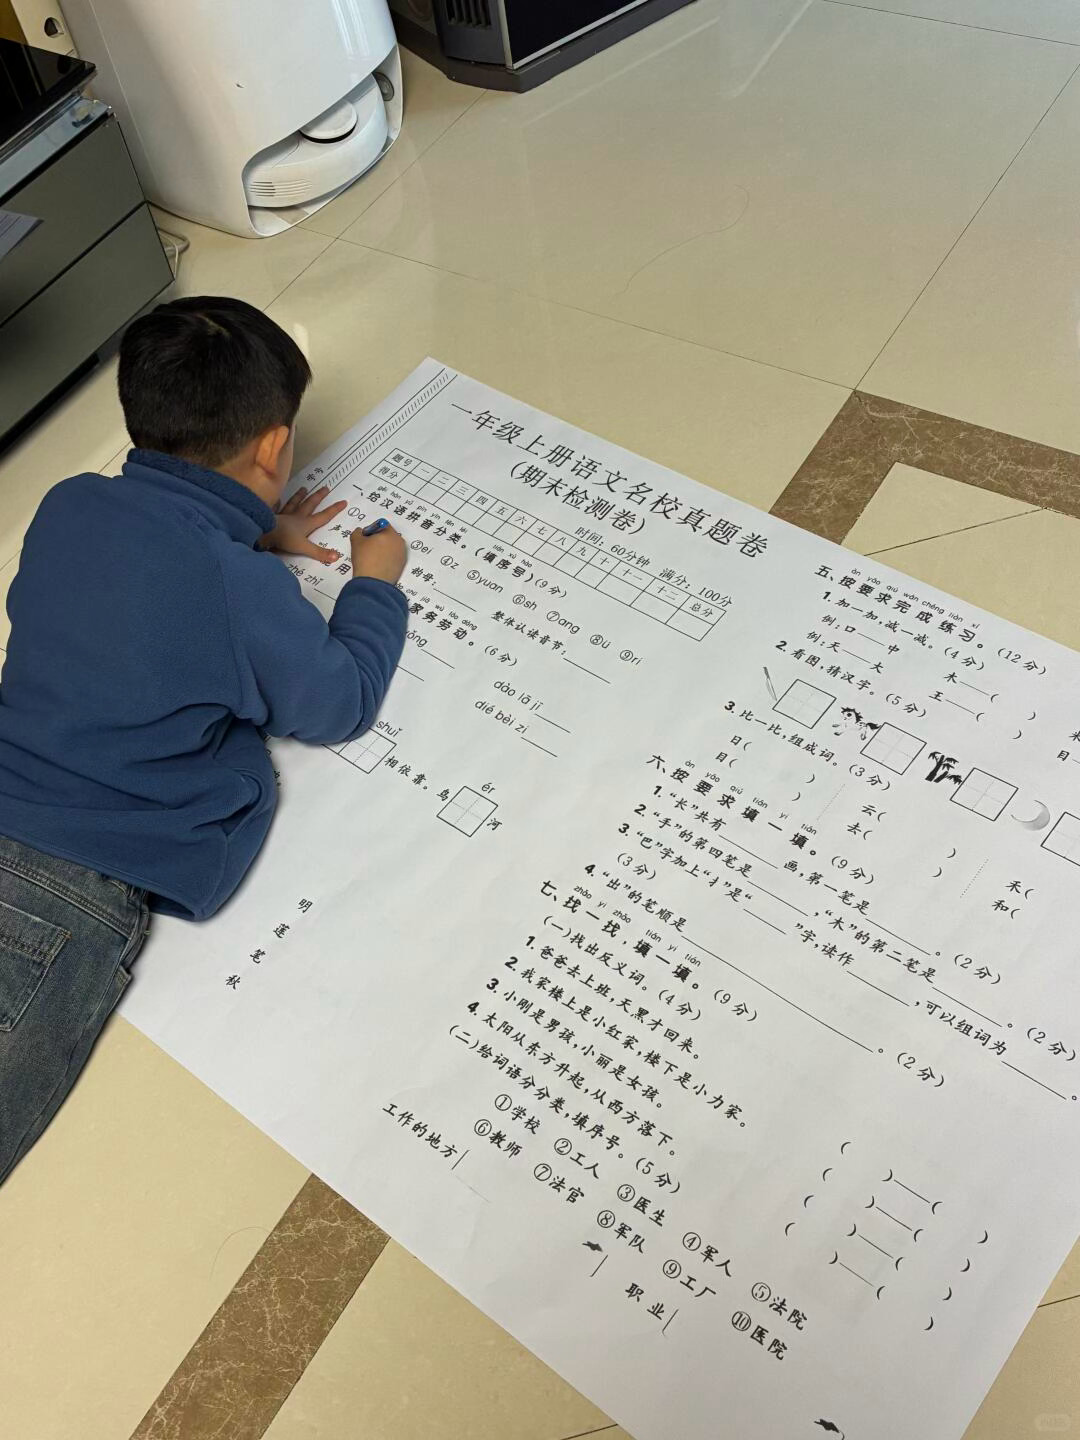 一年级上册语文名校真题卷
(期末检测卷)
时间：60分钟 满分：100分
题号 一 二 三 四 五 六 七 八 九 十 十一 十二 总分
得分
gěi hàn yǔ pīn yīn fēn lèi
一、给汉语拼音分类。(填序号)(9分)
①q ③ei ④z ⑤yuan ⑥sh ⑦ang ⑧ü ⑨ri
声母 韵母：____ 整体认读音节：____
用
zhé zhǐ
家务劳动。(6分)
dào lā jī____
dié bèi zi____
shuǐ
相依靠。鸟
ér
河
明
莲
笔
秋
àn yāo qiú wán chéng liàn xí
五、按要求完成练习。(12分)
1. 加一加，减一减。(4分)
例：口——中 木——( )
例：天——大 王——( )
2. 看图，猜汉字。(5分)
3. 比一比，组成词。(3分)
日( ) 云( ) 禾(
目( ) 去( ) 和(
àn yāo qiú tián yi tián
六、按要求填一填。(9分)
1. “长”共有____画，第一笔是____。(2分)
2. “手”的第四笔是____，“木”的第二笔是____。(2分)
3. “巴”字加上“扌”是“____”字，读作____，可以组词为____。
(3分)
4. “出”的笔顺是____。(2分)
zhǎo yi zhǎo tián yi tián
七、找一找，填一填。(9分)
(一)找出反义词。(4分)
1. 爸爸去上班，天黑才回来。 ( )——( )
2. 我家楼上是小红家，楼下是小力家。 ( )——( )
3. 小刚是男孩，小丽是女孩。 ( )——( )
4. 太阳从东方升起，从西方落下。 ( )——( )
(二)给词语分分类，填序号。(5分)
①学校 ②工人 ③医生 ④军人 ⑤法院
⑥教师 ⑦法官 ⑧军队 ⑨工厂 ⑩医院
工作的地方 职业